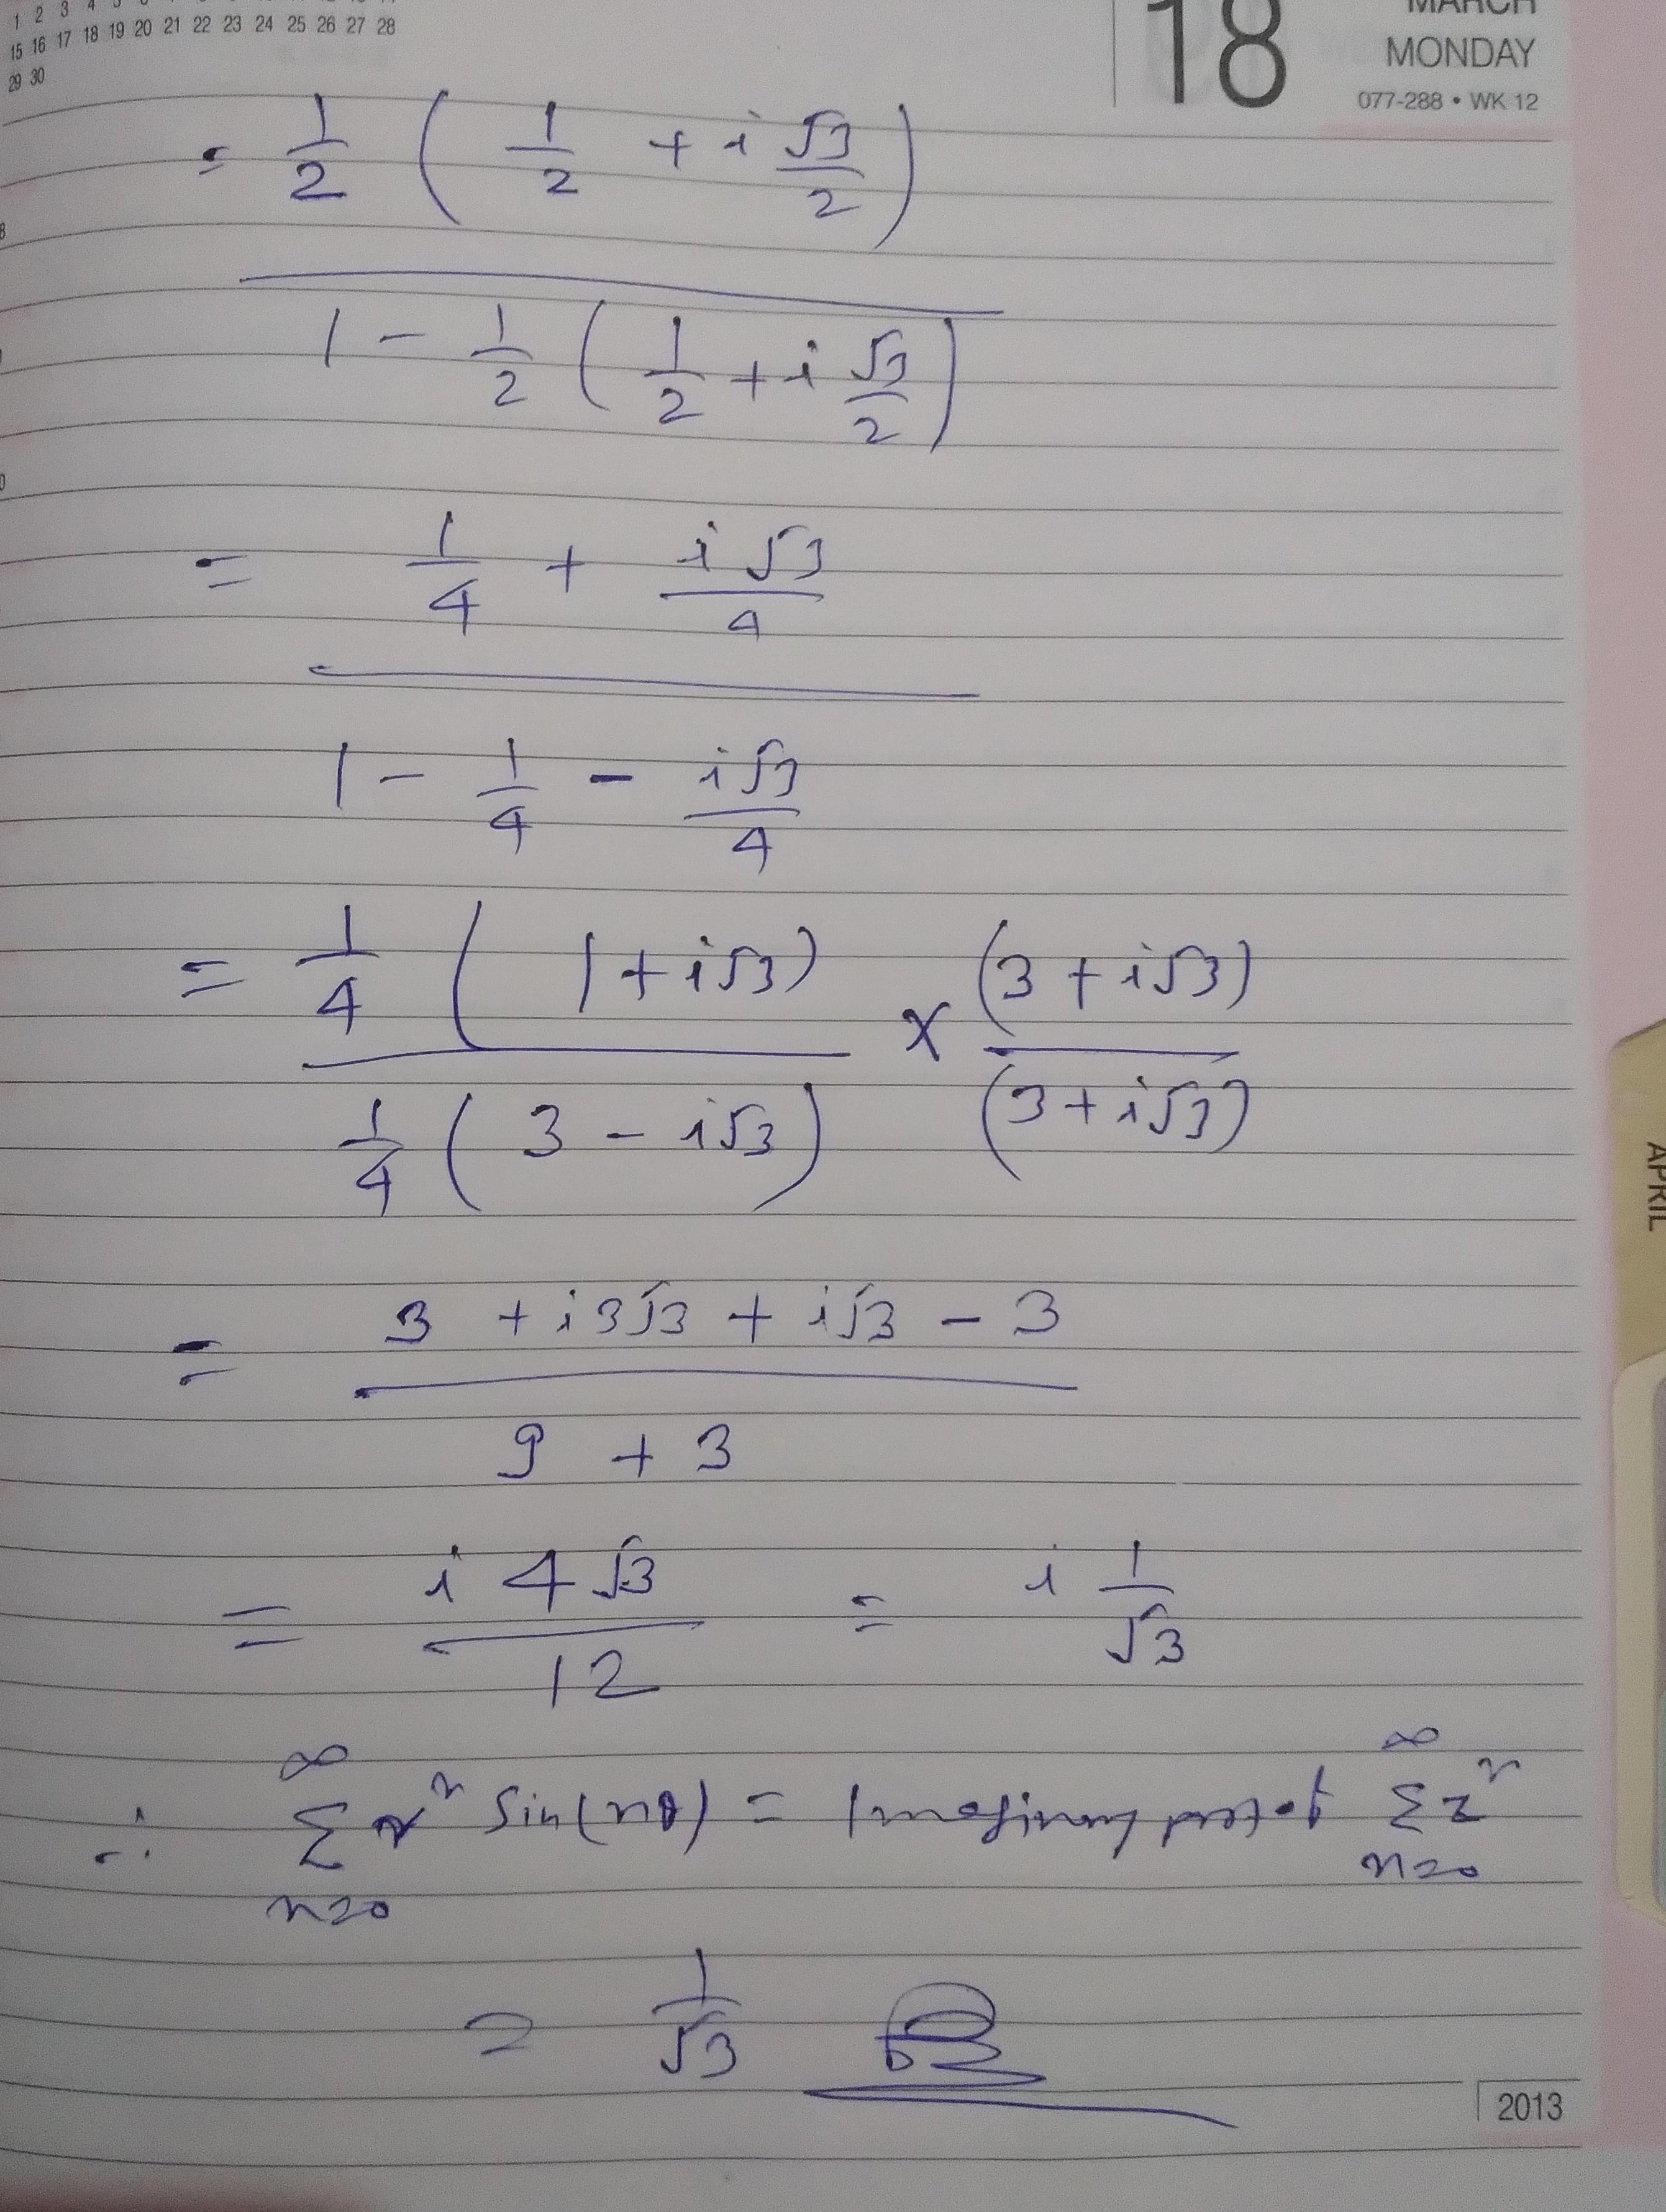 1 2 3 4 5 6
15 16 17 18 19 20 21 22 23 24 25 26 27 28
29 30
18 MARCH
MONDAY
077-288 • WK 12
= 1/2 ( 1/2 + i √3/2 )
1 - 1/2 ( 1/2 + i √3/2 )
= 1/4 + i√3/4
1 - 1/4 - i√3/4
= 1/4 ( 1 + i√3) × (3 + i√3)
1/4 ( 3 - i√3) (3 + i√3)
= 3 + i3√3 + i√3 - 3
9 + 3
= i 4√3/12 = i 1/√3
∴ ∑_{n=0}^{∞} r^n Sin(nθ) = Imaginary part of ∑_{n=0}^{∞} z^n
= 1/√3
APRIL
2013